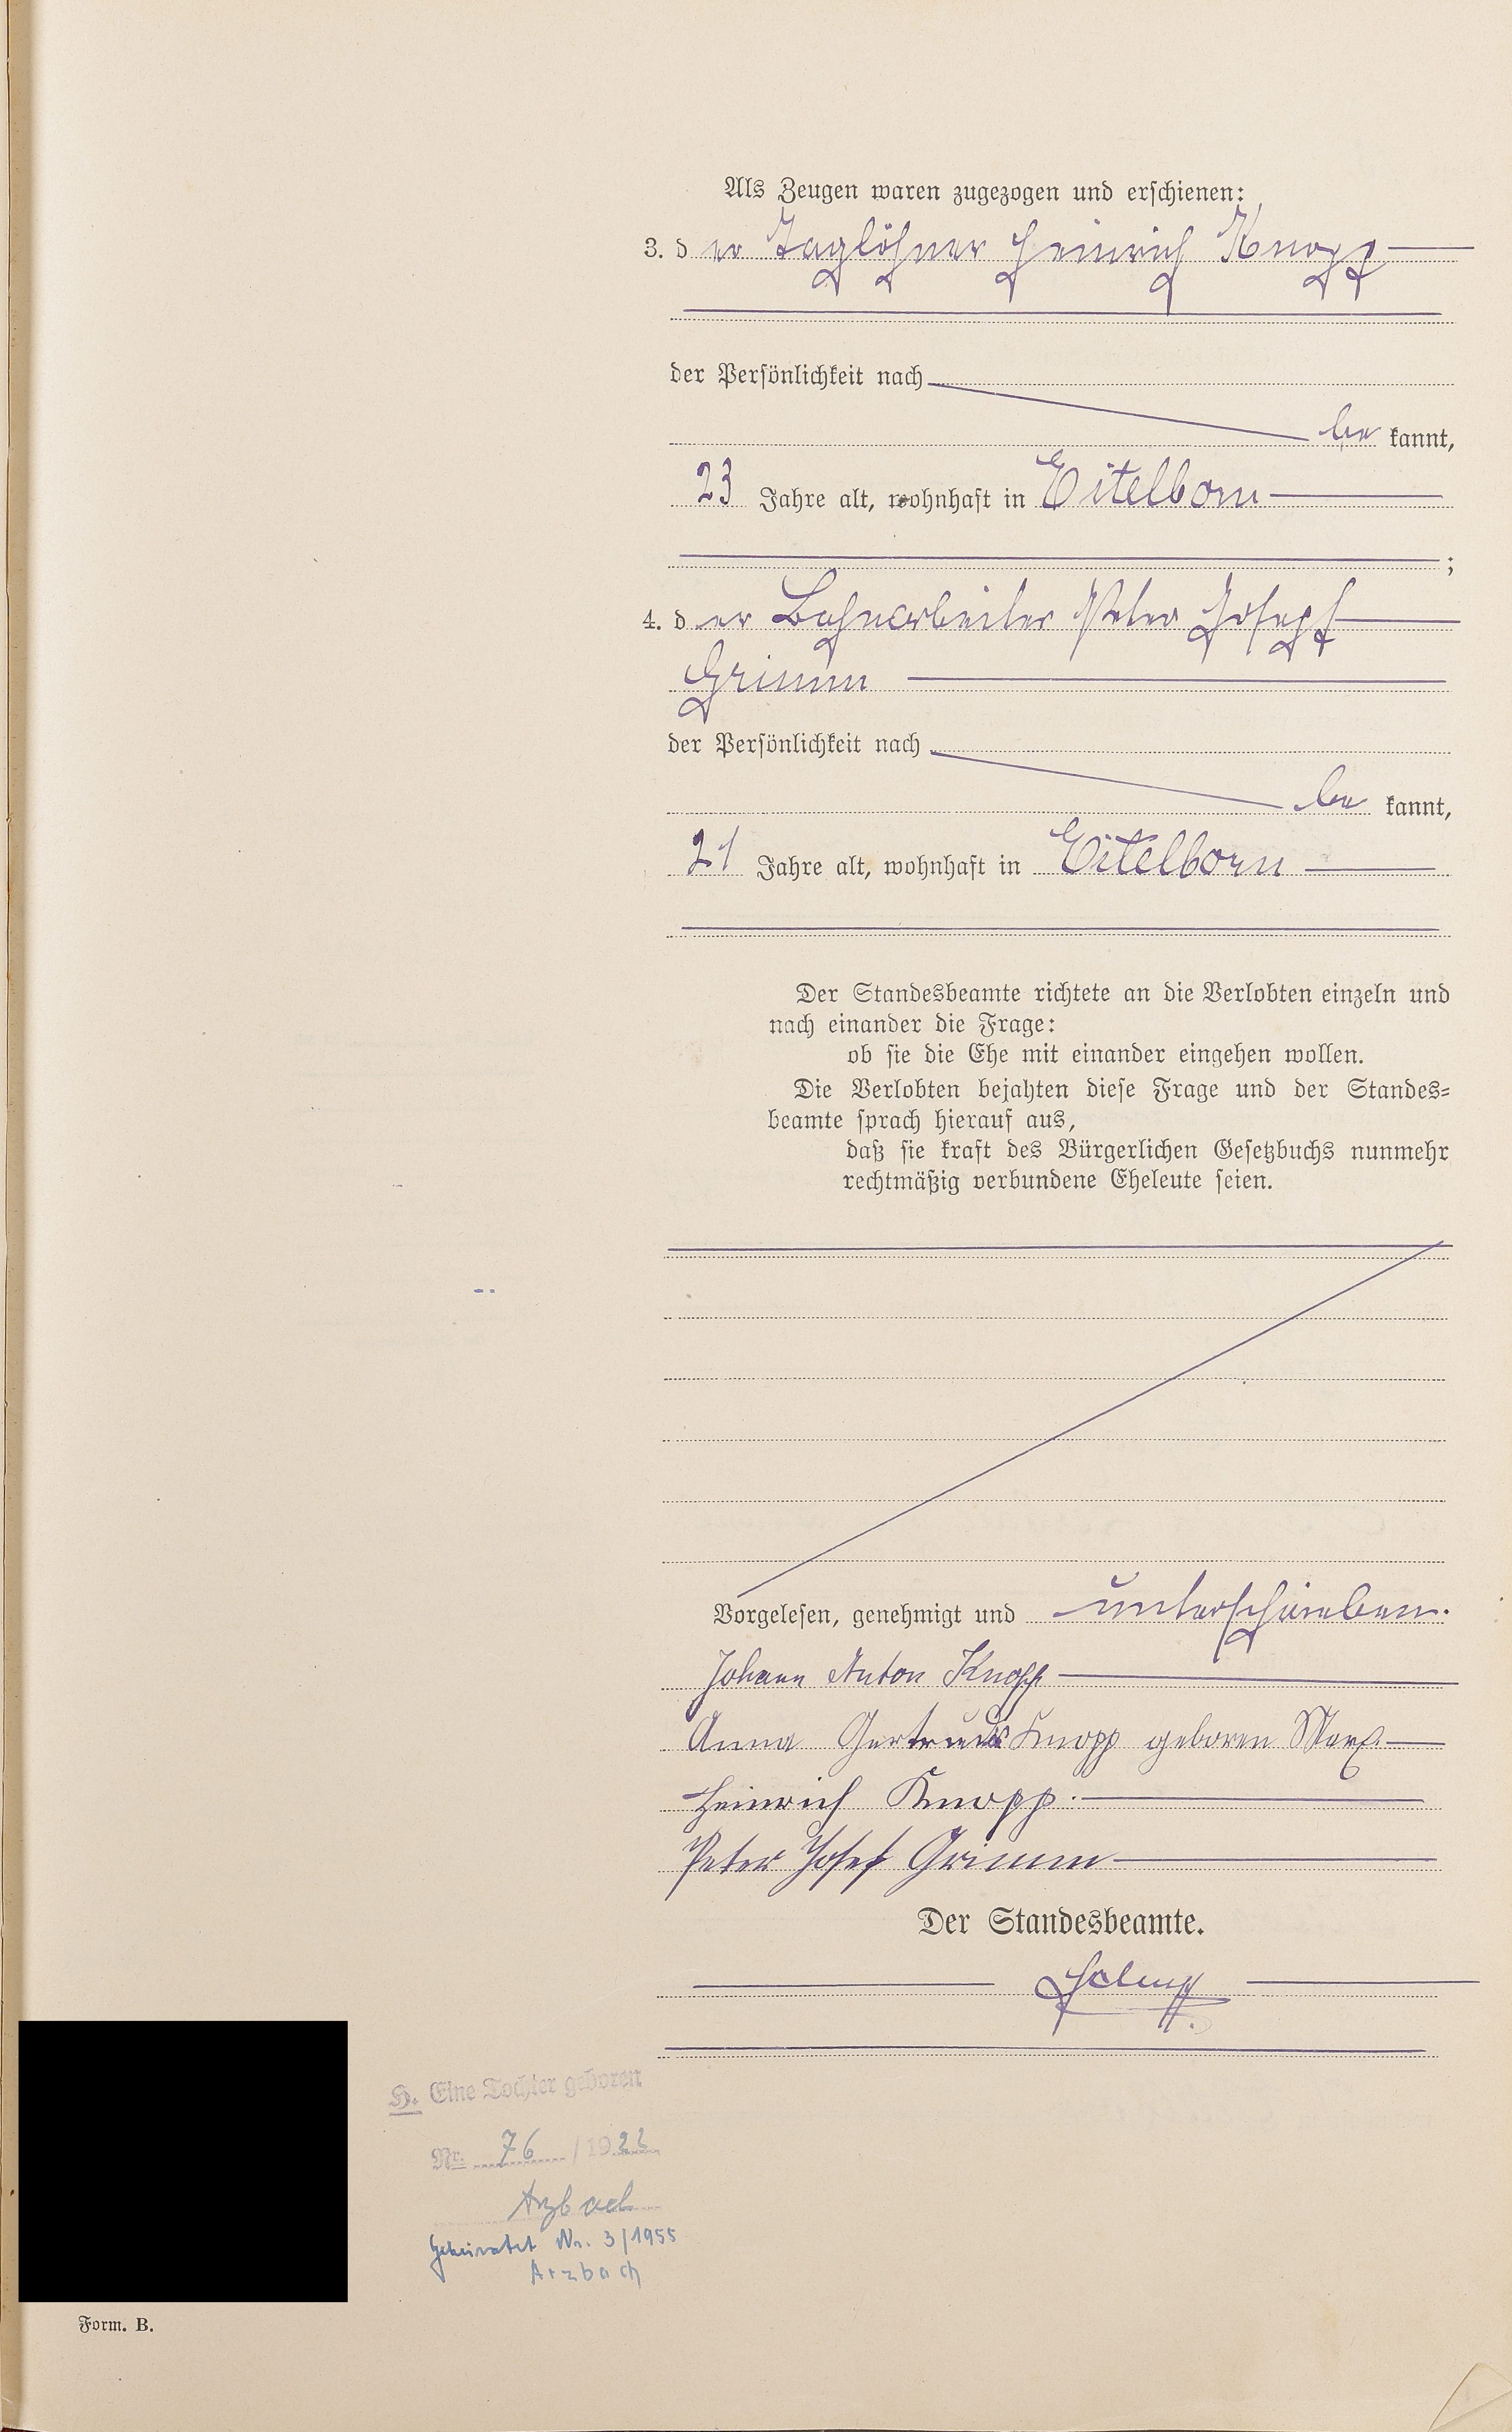 Als Zeugen waren zugezogen und erschienen:
3. der Taglöhner Heinrich Knopp
der Persönlichkeit nach
be kannt,
23 Jahre alt, wohnhaft in Eitelborn
;
4. der Bahnarbeiter Peter Joseph
Grimm
der Persönlichkeit nach
be kannt,
21 Jahre alt, wohnhaft in Eitelborn
Der Standesbeamte richtete an die Verlobten einzeln und
nach einander die Frage:
ob sie die Ehe mit einander eingehen wollen.
Die Verlobten bejahten diese Frage und der Standes=
beamte sprach hierauf aus,
daß sie kraft des Bürgerlichen Gesetzbuchs nunmehr
rechtmäßig verbundene Eheleute seien.
Vorgelesen, genehmigt und unterschrieben.
Johann Anton Knopp
Anna Gertrud Knopp geboren Marx
Heinrich Knopp.
Peter Josef Grimm
Der Standesbeamte.
H. Eine Tochter geboren
Nr. 76 / 1922
Arzbach
Geheiratet Nr. 3/1955
Arzbach
Form. B.